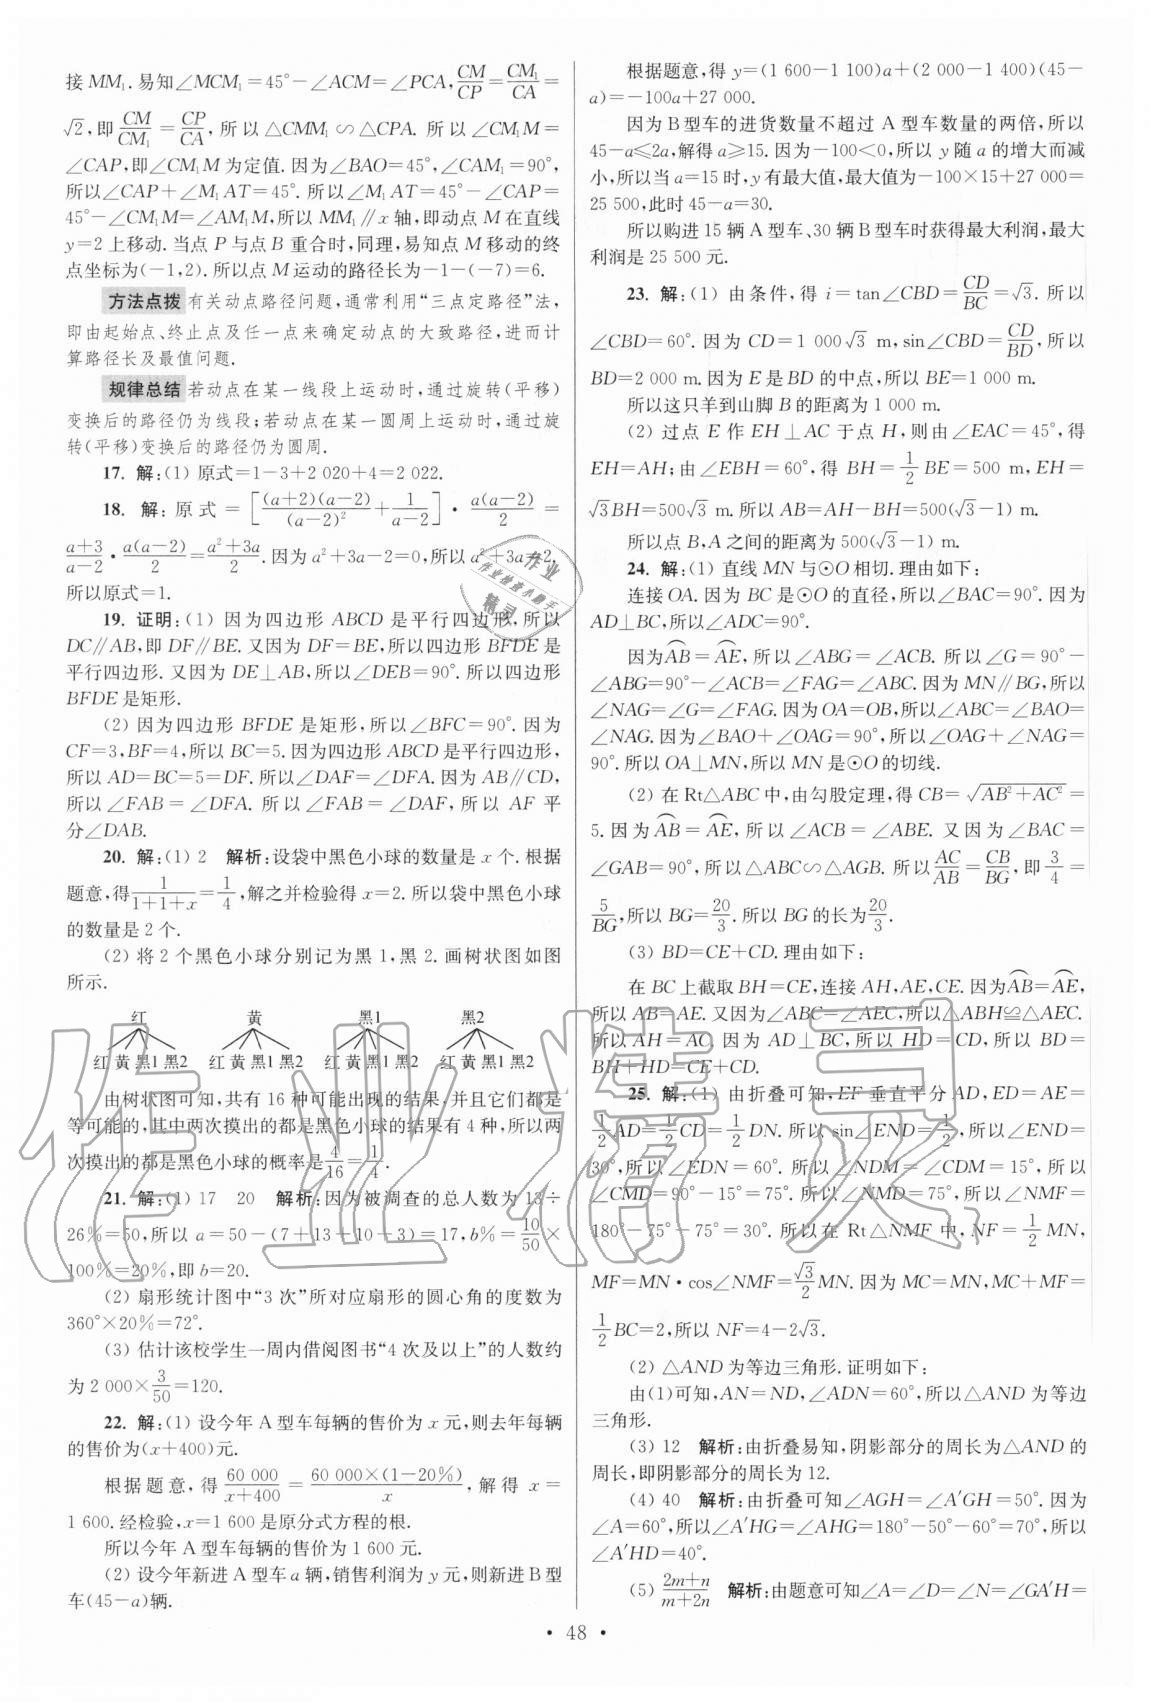 接 MM₁. 易知∠MCM₁=45°-∠ACM=∠PCA, CM/CP=CM₁/CA=
√2, 即 CM/CM₁=CP/CA, 所以△CMM₁∽△CPA. 所以∠CM₁M=
∠CAP, 即∠CM₁M 为定值. 因为∠BAO=45°, ∠CAM₁=90°,
所以∠CAP+∠M₁AT=45°. 所以∠M₁AT=45°-∠CAP=
45°-∠CM₁M=∠AM₁M, 所以 MM₁∥x 轴, 即动点 M 在直线
y=2 上移动. 当点 P 与点 B 重合时, 同理, 易知点 M 移动的终
点坐标为(-1,2). 所以点 M 运动的路径长为-1-(-7)=6.
方法点拨 有关动点路径问题, 通常利用“三点定路径”法,
即由起始点、终止点及任一点来确定动点的大致路径, 进而计
算路径长及最值问题.
规律总结 若动点在某一线段上运动时, 通过旋转(平移)
变换后的路径仍为线段; 若动点在某一圆周上运动时, 通过旋
转(平移)变换后的路径仍为圆周.
17. 解:(1) 原式=1-3+2 020+4=2 022.
18. 解: 原式=[(a+2)(a-2)/(a-2)²+1/(a-2)]·a(a-2)/2=
(a+3)/(a-2)·a(a-2)/2=(a²+3a)/2. 因为 a²+3a-2=0, 所以 a²+3a=2,
所以原式=1.
19. 证明:(1) 因为四边形 ABCD 是平行四边形, 所以
DC∥AB, 即 DF∥BE. 又因为 DF=BE, 所以四边形 BFDE 是
平行四边形. 又因为 DE⊥AB, 所以∠DEB=90°. 所以四边形
BFDE 是矩形.
(2) 因为四边形 BFDE 是矩形, 所以∠BFC=90°. 因为
CF=3, BF=4, 所以 BC=5. 因为四边形 ABCD 是平行四边形,
所以 AD=BC=5=DF. 所以∠DAF=∠DFA. 因为 AB∥CD,
所以∠FAB=∠DFA. 所以∠FAB=∠DAF, 所以 AF 平
分∠DAB.
20. 解:(1) 2 解析: 设袋中黑色小球的数量是 x 个. 根据
题意, 得 1/(1+1+x)=1/4, 解之并检验得 x=2. 所以袋中黑色小球
的数量是 2 个.
(2) 将 2 个黑色小球分别记为黑 1, 黑 2. 画树状图如图
所示.
红 黄 黑1 黑2
红 黄 黑1 黑2 红 黄 黑1 黑2 红 黄 黑1 黑2 红 黄 黑1 黑2
由树状图可知, 共有 16 种可能出现的结果, 并且它们都是
等可能的, 其中两次摸出的都是黑色小球的结果有 4 种, 所以两
次摸出的都是黑色小球的概率是 4/16=1/4.
21. 解:(1) 17 20 解析: 因为被调查的总人数为 13÷
26%=50, 所以 a=50-(7+13+10+3)=17, b%=10/50×
100%=20%, 即 b=20.
(2) 扇形统计图中“3 次”所对应扇形的圆心角的度数为
360°×20%=72°.
(3) 估计该校学生一周内借阅图书“4 次及以上”的人数约
为 2 000×3/50=120.
22. 解:(1) 设今年 A 型车每辆的售价为 x 元, 则去年每辆
的售价为(x+400)元.
根据题意, 得 60 000/(x+400)=60 000×(1-20%)/x, 解得 x=
1 600. 经检验, x=1 600 是原分式方程的根.
所以今年 A 型车每辆的售价为 1 600 元.
(2) 设今年新进 A 型车 a 辆, 销售利润为 y 元, 则新进 B 型
车(45-a)辆.
根据题意, 得 y=(1 600-1 100)a+(2 000-1 400)(45-
a)=-100a+27 000.
因为 B 型车的进货数量不超过 A 型车数量的两倍, 所以
45-a≤2a, 解得 a≥15. 因为-100<0, 所以 y 随 a 的增大而减
小, 所以当 a=15 时, y 有最大值, 最大值为-100×15+27 000=
25 500, 此时 45-a=30.
所以购进 15 辆 A 型车、30 辆 B 型车时获得最大利润, 最大
利润是 25 500 元.
23. 解:(1) 由条件, 得 i=tan∠CBD=CD/BC=√3. 所以
∠CBD=60°. 因为 CD=1 000√3 m, sin∠CBD=CD/BD, 所以
BD=2 000 m. 因为 E 是 BD 的中点, 所以 BE=1 000 m.
所以这只羊到山脚 B 的距离为 1 000 m.
(2) 过点 E 作 EH⊥AC 于点 H, 则由∠EAC=45°, 得
EH=AH; 由∠EBH=60°, 得 BH=1/2BE=500 m, EH=
√3BH=500√3 m. 所以 AB=AH-BH=500(√3-1) m.
所以点 B, A 之间的距离为 500(√3-1) m.
24. 解:(1) 直线 MN 与⊙O 相切. 理由如下:
连接 OA. 因为 BC 是⊙O 的直径, 所以∠BAC=90°. 因为
AD⊥BC, 所以∠ADC=90°.
因为 A͡B=A͡E, 所以∠ABG=∠ACB. 所以∠G=90°-
∠ABG=90°-∠ACB=∠FAG=∠ABC. 因为 MN∥BG, 所以
∠NAG=∠G=∠FAG. 因为 OA=OB, 所以∠ABC=∠BAO=
∠NAG. 因为∠BAO+∠OAG=90°, 所以∠OAG+∠NAG=
90°. 所以 OA⊥MN, 所以 MN 是⊙O 的切线.
(2) 在 Rt△ABC 中, 由勾股定理, 得 CB=√(AB²+AC²)=
5. 因为 A͡B=A͡E, 所以∠ACB=∠ABE. 又因为∠BAC=
∠GAB=90°, 所以△ABC∽△AGB. 所以 AC/AB=CB/BG, 即 3/4=
5/BG, 所以 BG=20/3. 所以 BG 的长为 20/3.
(3) BD=CE+CD. 理由如下:
在 BC 上截取 BH=CE, 连接 AH, AE, CE. 因为 A͡B=A͡E,
所以 AB=AE. 又因为∠ABC=∠AEC, 所以△ABH≌△AEC.
所以 AH=AC. 因为 AD⊥BC, 所以 HD=CD, 所以 BD=
BH+HD=CE+CD.
25. 解:(1) 由折叠可知, EF 垂直平分 AD, ED=AE=
1/2AD=1/2CD=1/2DN. 所以 sin∠END=1/2, 所以∠END=
30°, 所以∠EDN=60°. 所以∠NDM=∠CDM=15°, 所以
∠CMD=90°-15°=75°. 所以∠NMD=75°, 所以∠NMF=
180°-75°-75°=30°. 所以在 Rt△NMF 中, NF=1/2MN,
MF=MN·cos∠NMF=√3/2MN. 因为 MC=MN, MC+MF=
1/2BC=2, 所以 NF=4-2√3.
(2) △AND 为等边三角形. 证明如下:
由(1)可知, AN=ND, ∠ADN=60°, 所以△AND 为等边
三角形.
(3) 12 解析: 由折叠易知, 阴影部分的周长为△AND 的
周长, 即阴影部分的周长为 12.
(4) 40 解析: 由折叠可知∠AGH=∠A′GH=50°. 因为
∠A=60°, 所以∠A′HG=∠AHG=180°-50°-60°=70°, 所以
∠A′HD=40°.
(5) (2m+n)/(m+2n) 解析: 由题意可知∠A=∠D=∠N=∠GA′H=
· 48 ·
作业精灵